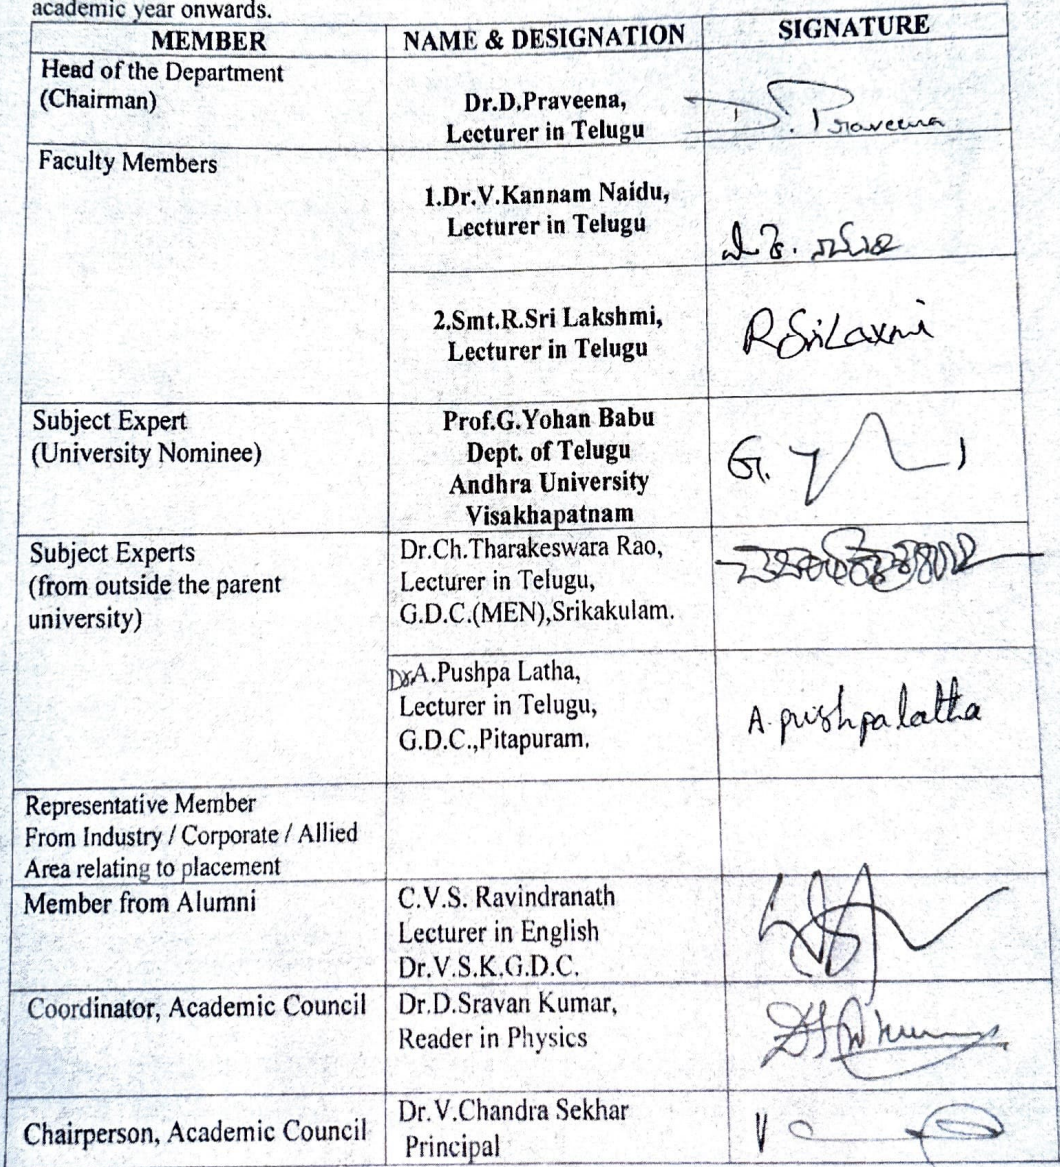 academic year onwards.
MEMBER NAME & DESIGNATION SIGNATURE
Head of the Department
(Chairman)
Dr.D.Praveena,
Lecturer in Telugu
D. Praveena
Faculty Members
1.Dr.V.Kannam Naidu,
Lecturer in Telugu
2.Smt.R.Sri Lakshmi,
Lecturer in Telugu
R SriLaxmi
Subject Expert
(University Nominee)
Prof.G.Yohan Babu
Dept. of Telugu
Andhra University
Visakhapatnam
G.
Subject Experts
(from outside the parent
university)
Dr.Ch.Tharakeswara Rao,
Lecturer in Telugu,
G.D.C.(MEN),Srikakulam.
Dr.A.Pushpa Latha,
Lecturer in Telugu,
G.D.C.,Pitapuram.
A. pushpa latha
Representative Member
From Industry / Corporate / Allied
Area relating to placement
Member from Alumni
C.V.S. Ravindranath
Lecturer in English
Dr.V.S.K.G.D.C.
Coordinator, Academic Council
Dr.D.Sravan Kumar,
Reader in Physics
Chairperson, Academic Council
Dr.V.Chandra Sekhar
Principal